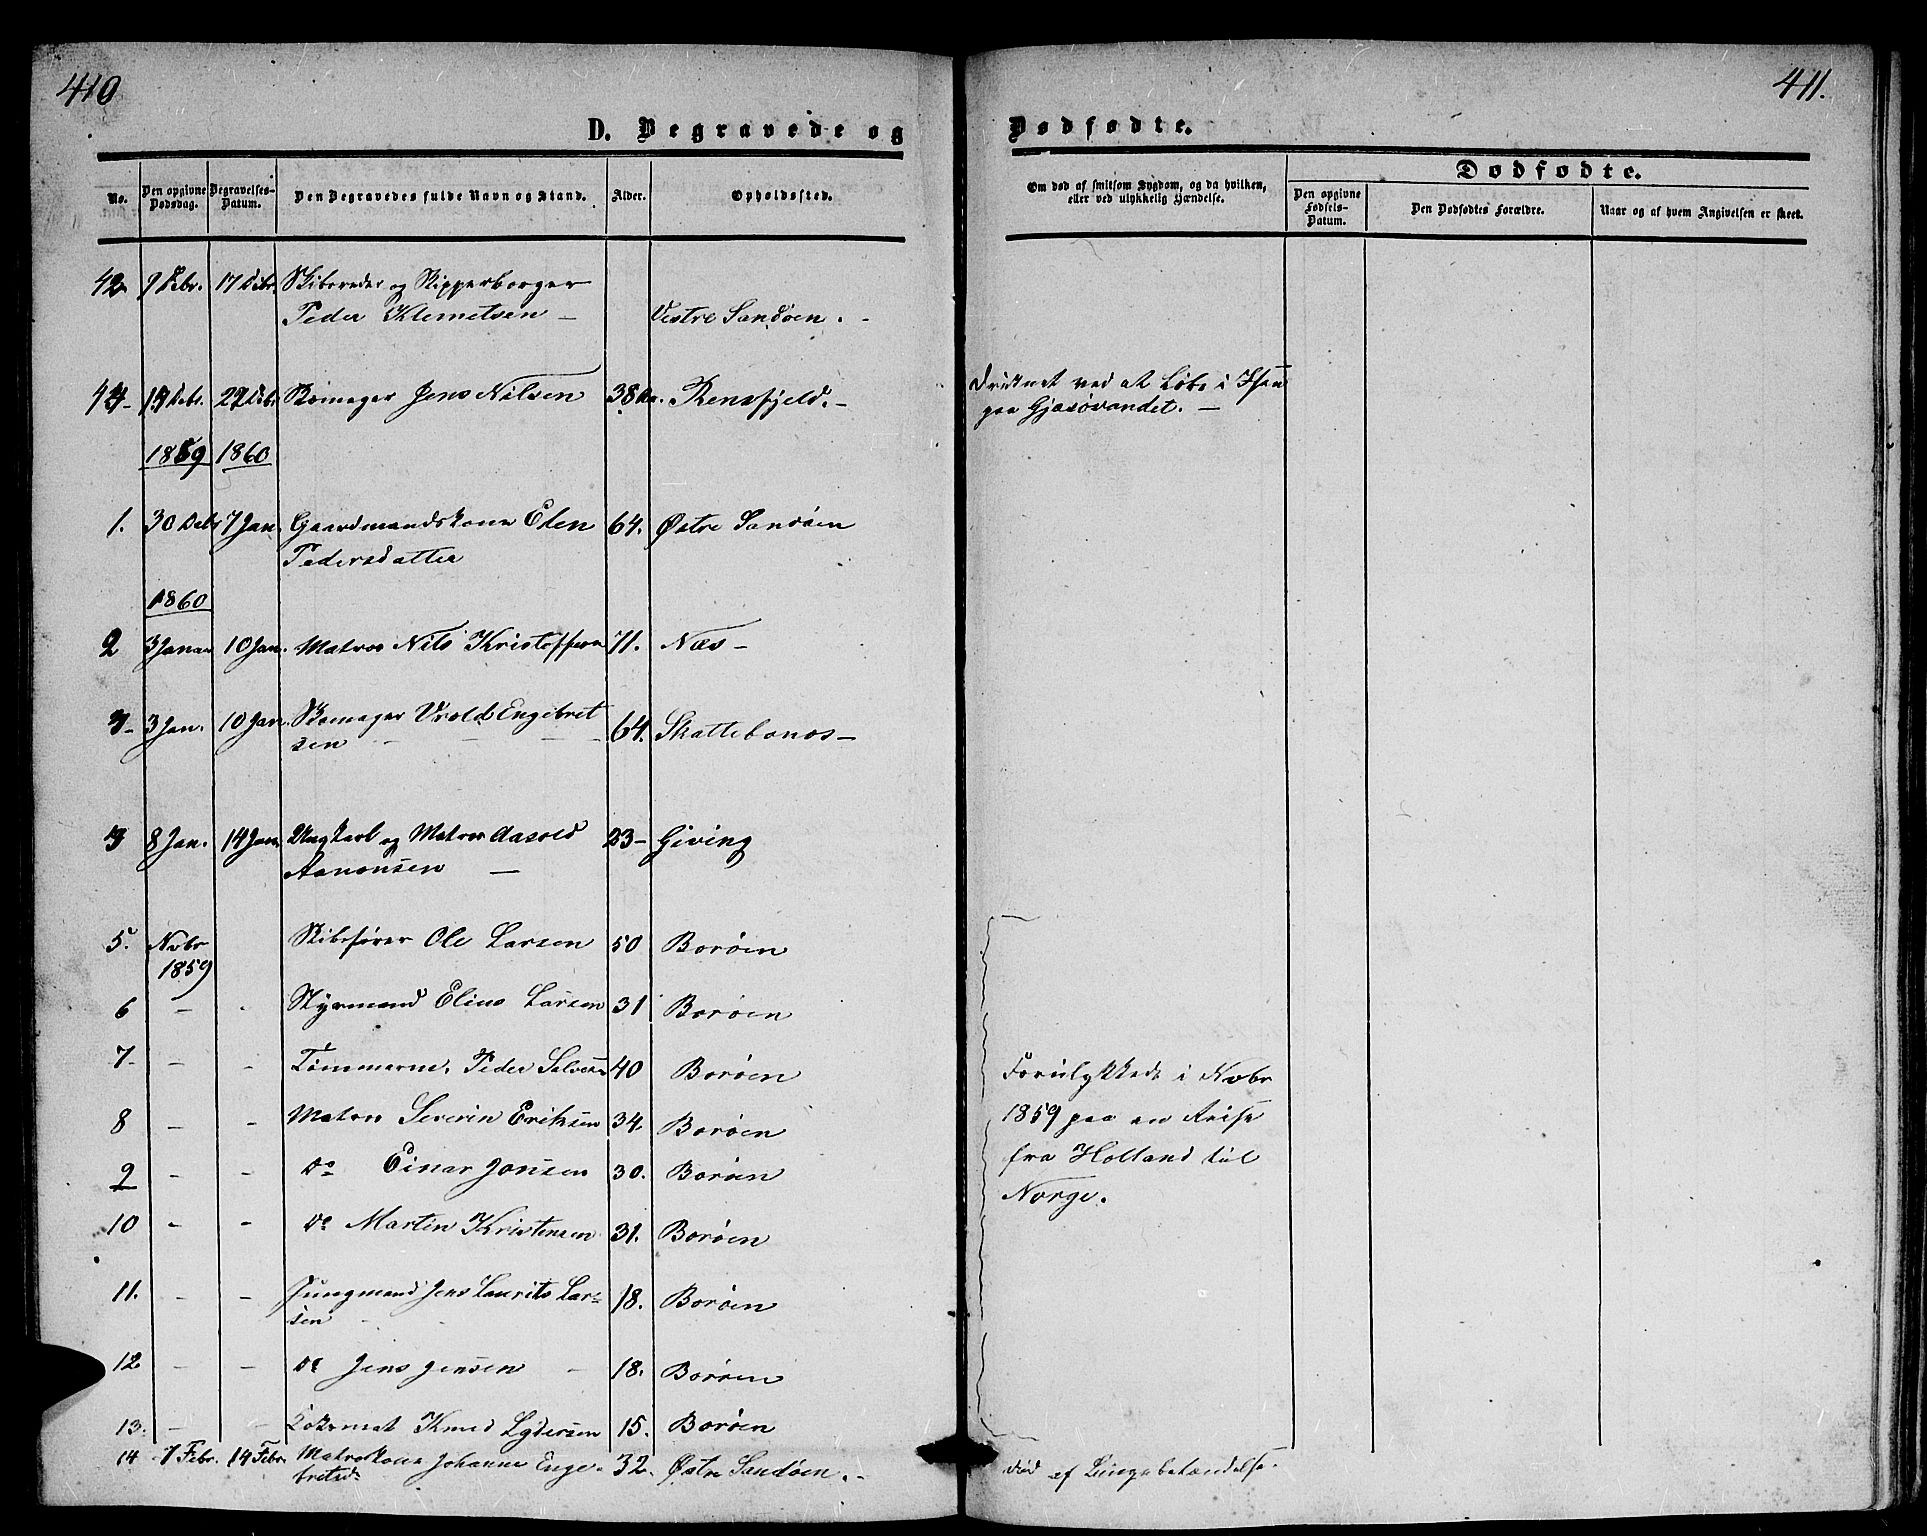 410
411.
D. Begravede og
Dødfødte.
No.
Den opgivne Dødsdag.
Begravelses-Datum.
Den Begravedes fulde Navn og Stand.
Alder.
Opholdssted.
Om død af smitsom Sygdom, og da hvilken,
eller ved ulykkelig Hændelse.
Dødfødte.
Den opgivne Fødsels-Datum.
Den Dødfødtes Forældre.
Naar og af hvem Angivelsen er skeet.
42 9 Debr. 17 Debr. Skibsreder og Skipperborger
Peder Klemetsen – Vestre Sandøen. -
19 Debr. Skomager Jens Nilsen 38 Rensfjeld. –
Druknet ved at Løbe i Isen
paa Gjæsøvandet. –
1859 1860
1. 30 Debr 7 Jan. Gaardmandskone Elen 64. Østre Sandøen
Pedersdatter
1860
2 3 Januar 10 Jan. Matros Nils Kristoffersn 71. Næs –
3 Jan. 10 Jan. Skomager Vrold Engebret 64. Skattebonæs –
sen
8 Jan. 14 Jan. Ungkarl og Matros Aasold 23 – Giving
Aanonsen –
5. Novbr Skibsfører Ole Larsen 50 Borøen
1859
6 – - Styrmand Elias Larsen 31 Borøen
7 – - Tømmerm. Peder Salvesen 40 Borøen
8 – - Matros Severin Eriksen 34. Borøen
9 – - do Einar Jonsen 30. Borøen
10 - - do Martin Kristensen 31. Borøen
11. - - Jungmand Jens Laurits Lar= 18. Borøen
sen
12 – – do Jens Jensen – 18. Borøen
13. – – Kokemat Knud Lydersen 15. Borøen
Forulykkede i Novbr
1859 paa en Reise
fra Holland til
Norge.
14 7 Febr. 14 Febr. Matroskone Johanne Enge- 32. Østre Sandøen. –
bretsd.
død af Lungebetændelse.